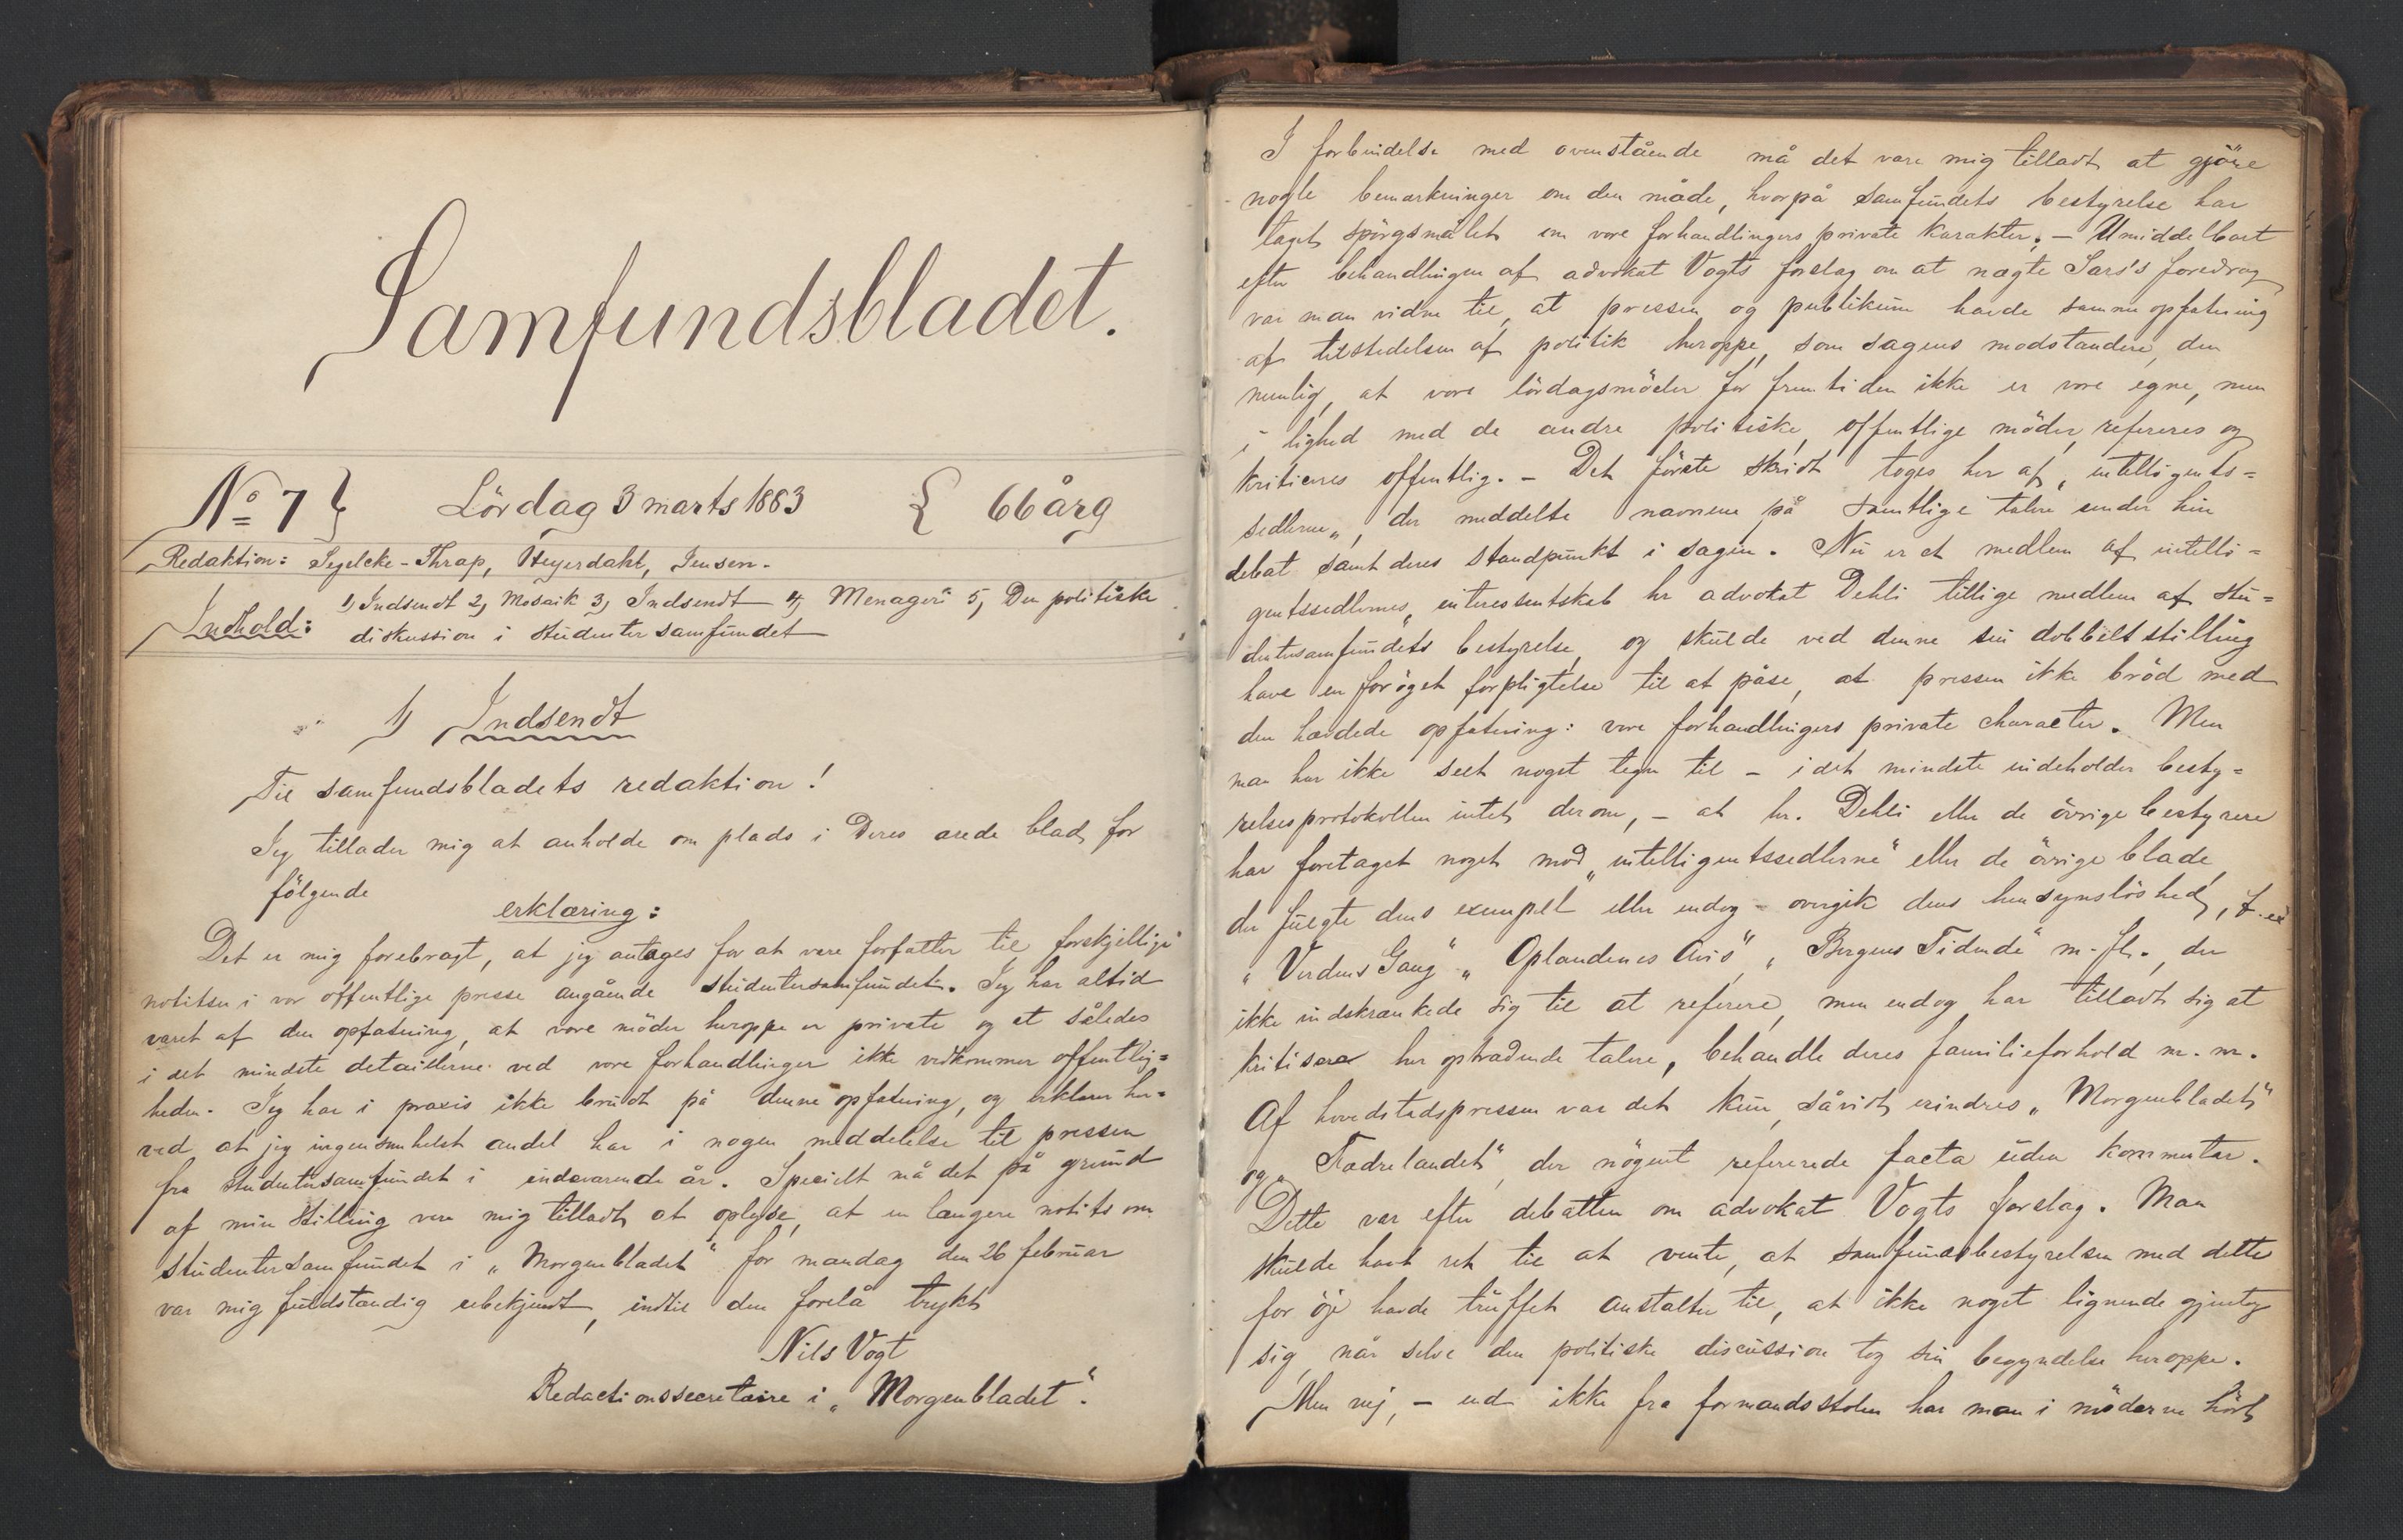 Samfundsbladet.
No 7 } Lördag 3 marts 1883 { 66 årg
Redaktion: Segelcke-Thrap, Heyerdahl, Jensen.
Indhold: 1, Indsendt 2, Mosaik 3, Indsendt 4, Menageri 5, Den politiske
diskussion i studentersamfundet
1) Indsendt
Til samfundsbladets redaktion!
Jeg tillader mig at anholde om plads i Deres ærede blad for
fölgende
erklæring:
Det er mig forebragt, at jeg antages for at være forfatter til forskjellige
notitser i vor offentlige presse angående studentersamfundet. Jeg har altid
været af den opfatning, at vore möder heroppe er private og at således
i det mindste detaillerne ved vore forhandlinger ikke vedkommer offentlig=
heden. Jeg har i praxis ikke brudt på denne opfatning, og erklærer her=
ved at jeg ingensomhelst andel har i nogen meddelelse til pressen
fra studentersamfundet i indeværende år. Specielt må det på grund
af min stilling være mig tilladt at oplyse, at en længere notits om
studentersamfundet i „Morgenbladet“ for mandag den 26 februar
var mig fuldstændig ubekjendt, indtil den forelå trykt
Nils Vogt
Redactionssecretaire i „Morgenbladet“.
I forbindelse med ovenstående må det være mig tilladt at gjöre
nogle bemærkninger om den måde, hvorpå samfundets bestyrelse har
taget spörgsmålet om vore forhandlingers private karakter. – Umiddelbart
efter behandlingen af advokat Vogts forslag om at nægte Sars's foredrag
var man vidne til, at pressen og publikum havde samme opfatning
af tilstedelsen af politik heroppe, som sagens modstandere, den
nemlig, at vore lördagsmöder for fremtiden ikke er vore egne, men
i lighed med de andre politiske, offentlige möder, refereres og
kritiseres offentlig. – Det förste skridt toges her af „intelligents=
sedlerne„, der meddelte navnene på samtlige talere under hin
debat samt deres standpunkt i sagen. Nu er et medlem af intelli=
gentssedlernes„ interessentskab hr advokat Dehli tillige medlem af stu=
dentersamfundets bestyrelse, og skulde ved denne sin dobbeltstilling
have en foröget forpligtelse til at påse, at pressen ikke bröd med
den hævdede opfatning: vore forhandlingers private character. Men
man har ikke seet noget tegn til – i det mindste indeholder besty=
relsesprotokollen intet derom, – at hr. Dehli eller de övrige bestyrere
har foretaget noget mod „intelligentssedlerne“ eller de övrige blade,
der fulgte dens exempel eller endog – overgik dens hensynslöshed, f. ex
„Verdens Gang“ „Oplandenes Avis“, „Bergens Tidende“ m. fl., der
ikke indskrænkede sig til at referere, men endog har tilladt sig at
kritisere her optrædende talere, behandle deres familieforhold m. m.
Af hovedstadspressen var det kun, såvidt erindres „Morgenbladet“
og „Fædrelandet“, der nögent refererede facta uden kommentar.
Dette var efter debatten om advokat Vogts forslag. Man
skulde havt ret til at vente, at samfundsbestyrelsen med dette
for öje havde truffet anstalter til, at ikke noget lignende gjentog
sig, når selve den politiske discussion tog sin begyndelse heroppe.
Men nej, – end ikke fra formandsstolen har man i möderne hört